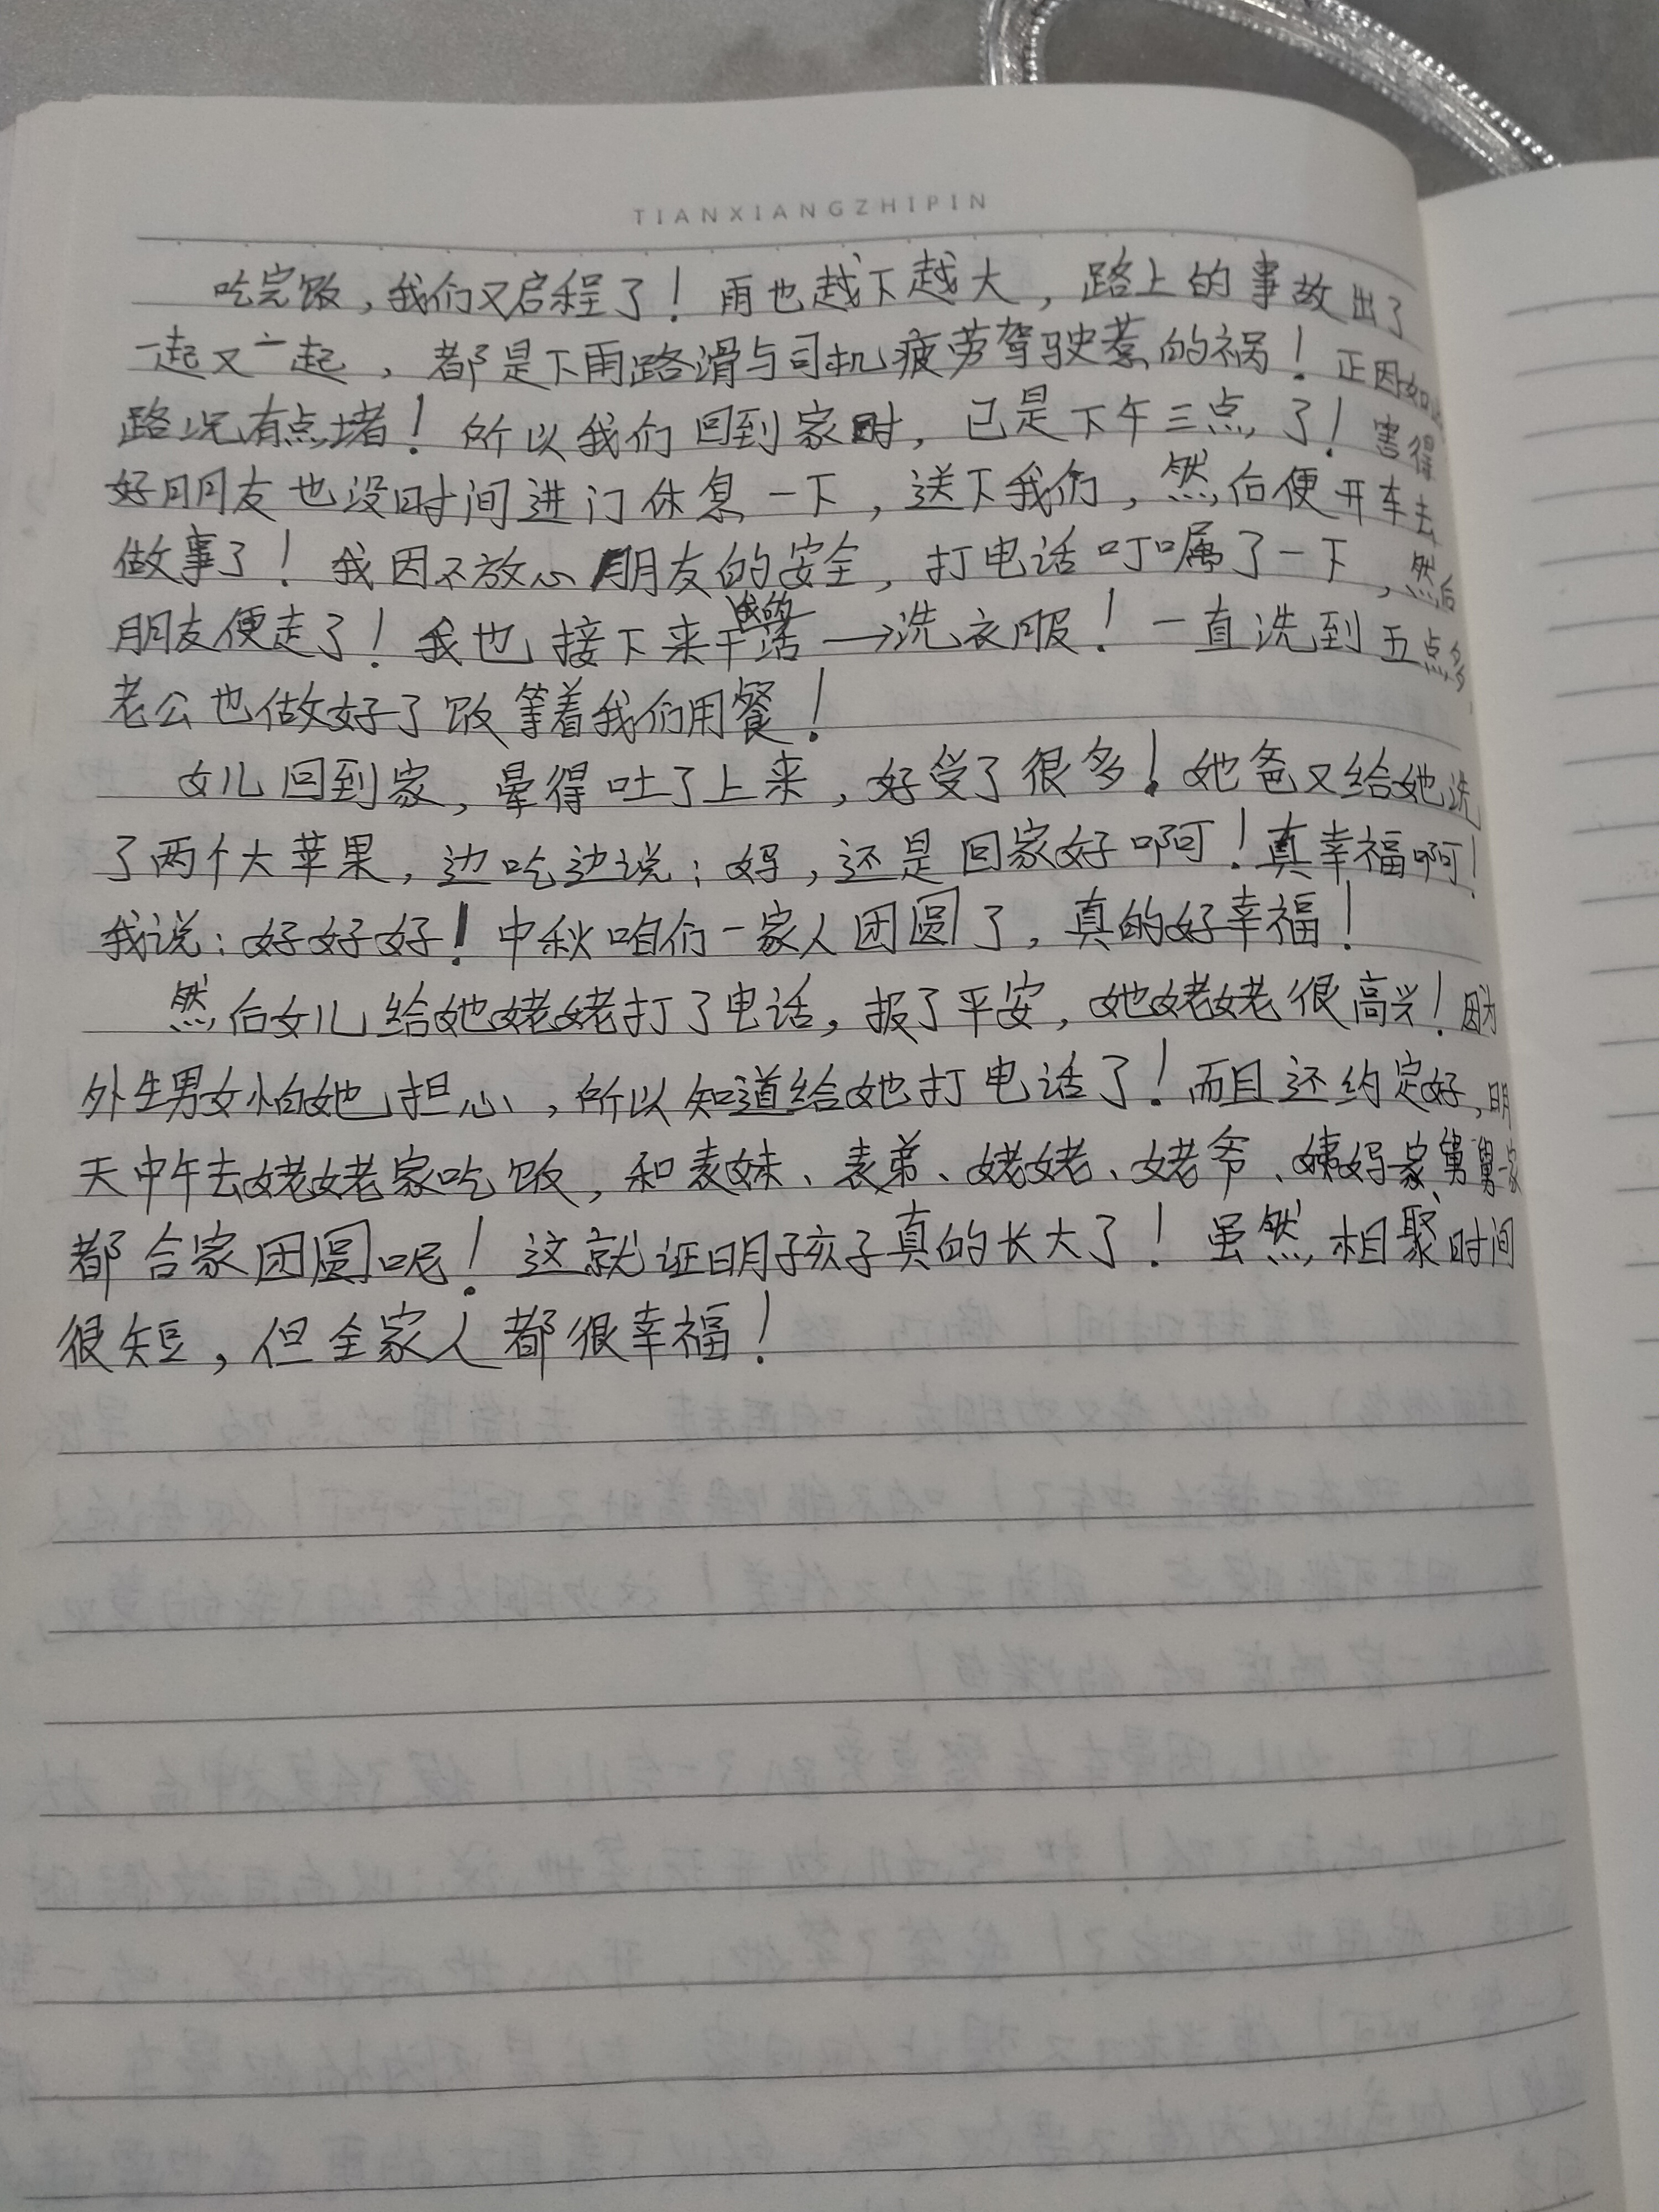 TIANXIANGZHIPIN
吃完饭，我们又启程了！雨也越下越大，路上的事故出了
一起又一起，都是下雨路滑与司机疲劳驾驶惹的祸！正因如
路况有点堵！所以我们回到家时，已是下午三点了！害得
好朋友也没时间进门休息一下，送下我们，然后便开车去
做事了！我因不放心朋友的安全，打电话叮嘱了一下，然后
朋友便走了！我也接下来干活→洗衣服！一直洗到五点多
老公也做好了饭等着我们用餐！
女儿回到家，晕得吐了上来，好受了很多！她爸又给她洗
了两个大苹果，边吃边说：妈，还是回家好啊！真幸福啊！
我说：好好好！中秋咱们一家人团圆了，真的好幸福！
然后女儿给她姥姥打了电话，报了平安，她姥姥很高兴！因为
外生男女怕她担心，所以知道给她打电话了！而且还约定好，明
天中午去姥姥家吃饭，和表妹、表弟、姥姥、姥爷、姨妈家、舅舅一家
都合家团圆呢！这就证明孩子真的长大了！虽然相聚时间
很短，但全家人都很幸福！